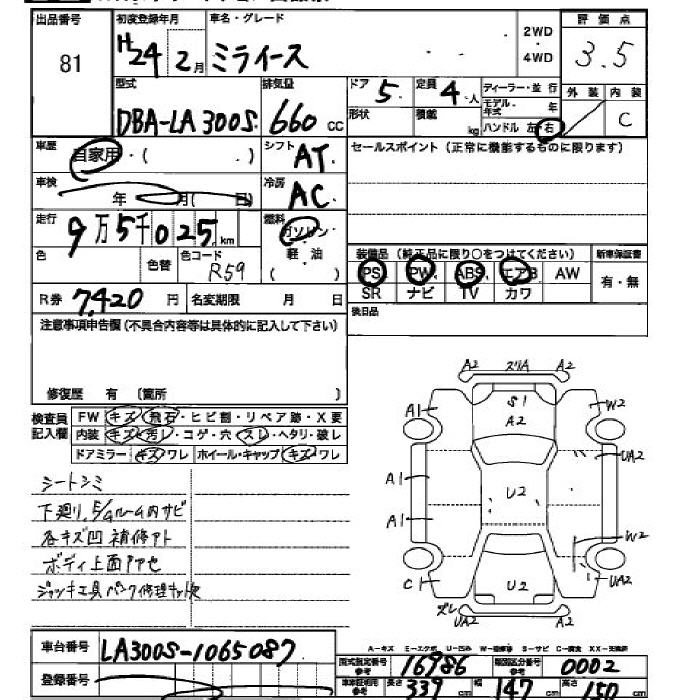 出品番号 初度登録年月 車名・グレード 2WD ・ 4WD 評価点
81 H24 2月 ミライース 3.5
型式 排気量 ドア 5. 定員 4人 ディーラー・並行 外装 内装
DBA-LA300S. 660cc 形状 積載 kg モデル年式 年 C
ハンドル 左・右
車歴 自家用・( ) シフト AT. セールスポイント(正常に機能するものに限ります)
車検 年 月( 日) 冷房 AC
走行 9万5千025km 燃料 ガソリン・軽油 ( )
色 色替 色コード R59
装備品(純正品に限り○をつけてください) 新車保証書
PS PW. ABS エアB AW 有・無
SR ナビ TV カワ
R券 7,420円 名変期限 月 日 後日品
注意事項申告欄(不具合内容等は具体的に記入して下さい)
修復歴 有 〔箇所 〕
検査員記入欄 FW キズ・飛石・ヒビ割・リペア跡・X要
内装 キズ・汚レ・コゲ・穴・スレ・ヘタリ・破レ
ドアミラー キズ・ワレ ホイール・キャップ キズ・ワレ
シートシミ
下廻り.E/gルーム内サビ
各キズ凹 補修アト
ボディ上面アセ
ジャッキ工具パンク修理キット欠
A2 ズリA A2
S1
A2
A1 W2
A1 UA2
U2
A1
W2
C1 U2 UA2
ズレ
UA2 A2
A-キズ E-エクボ U-凹み W-補修跡 S-サビ C-腐食 XX-交換済
車台番号 LA300S-1065087
登録番号
型式指定番号 参考 16986 類別区分番号 参考 0002
車検証用 参考 長さ 339cm 幅 147cm 高さ 150cm